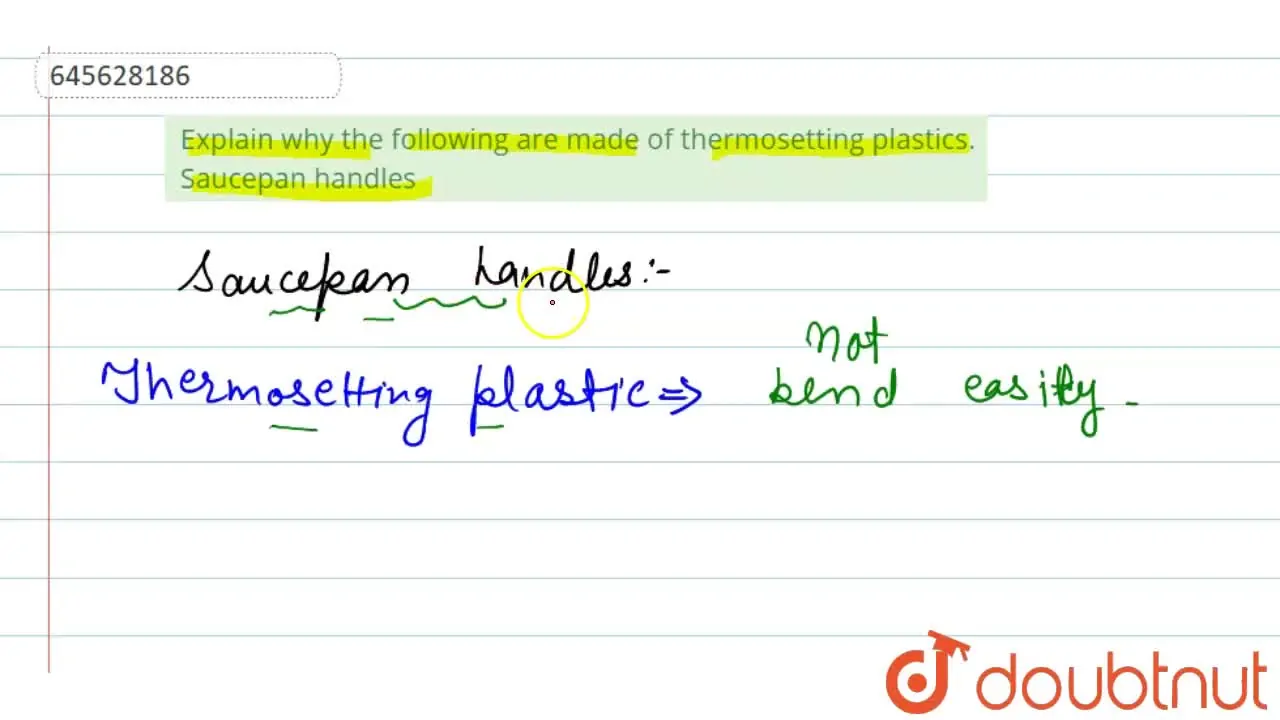 645628186
Explain why the following are made of thermosetting plastics.
Saucepan handles
Saucepan handles:-
not
Thermosetting plastic⇒ bend easily.
doubtnut